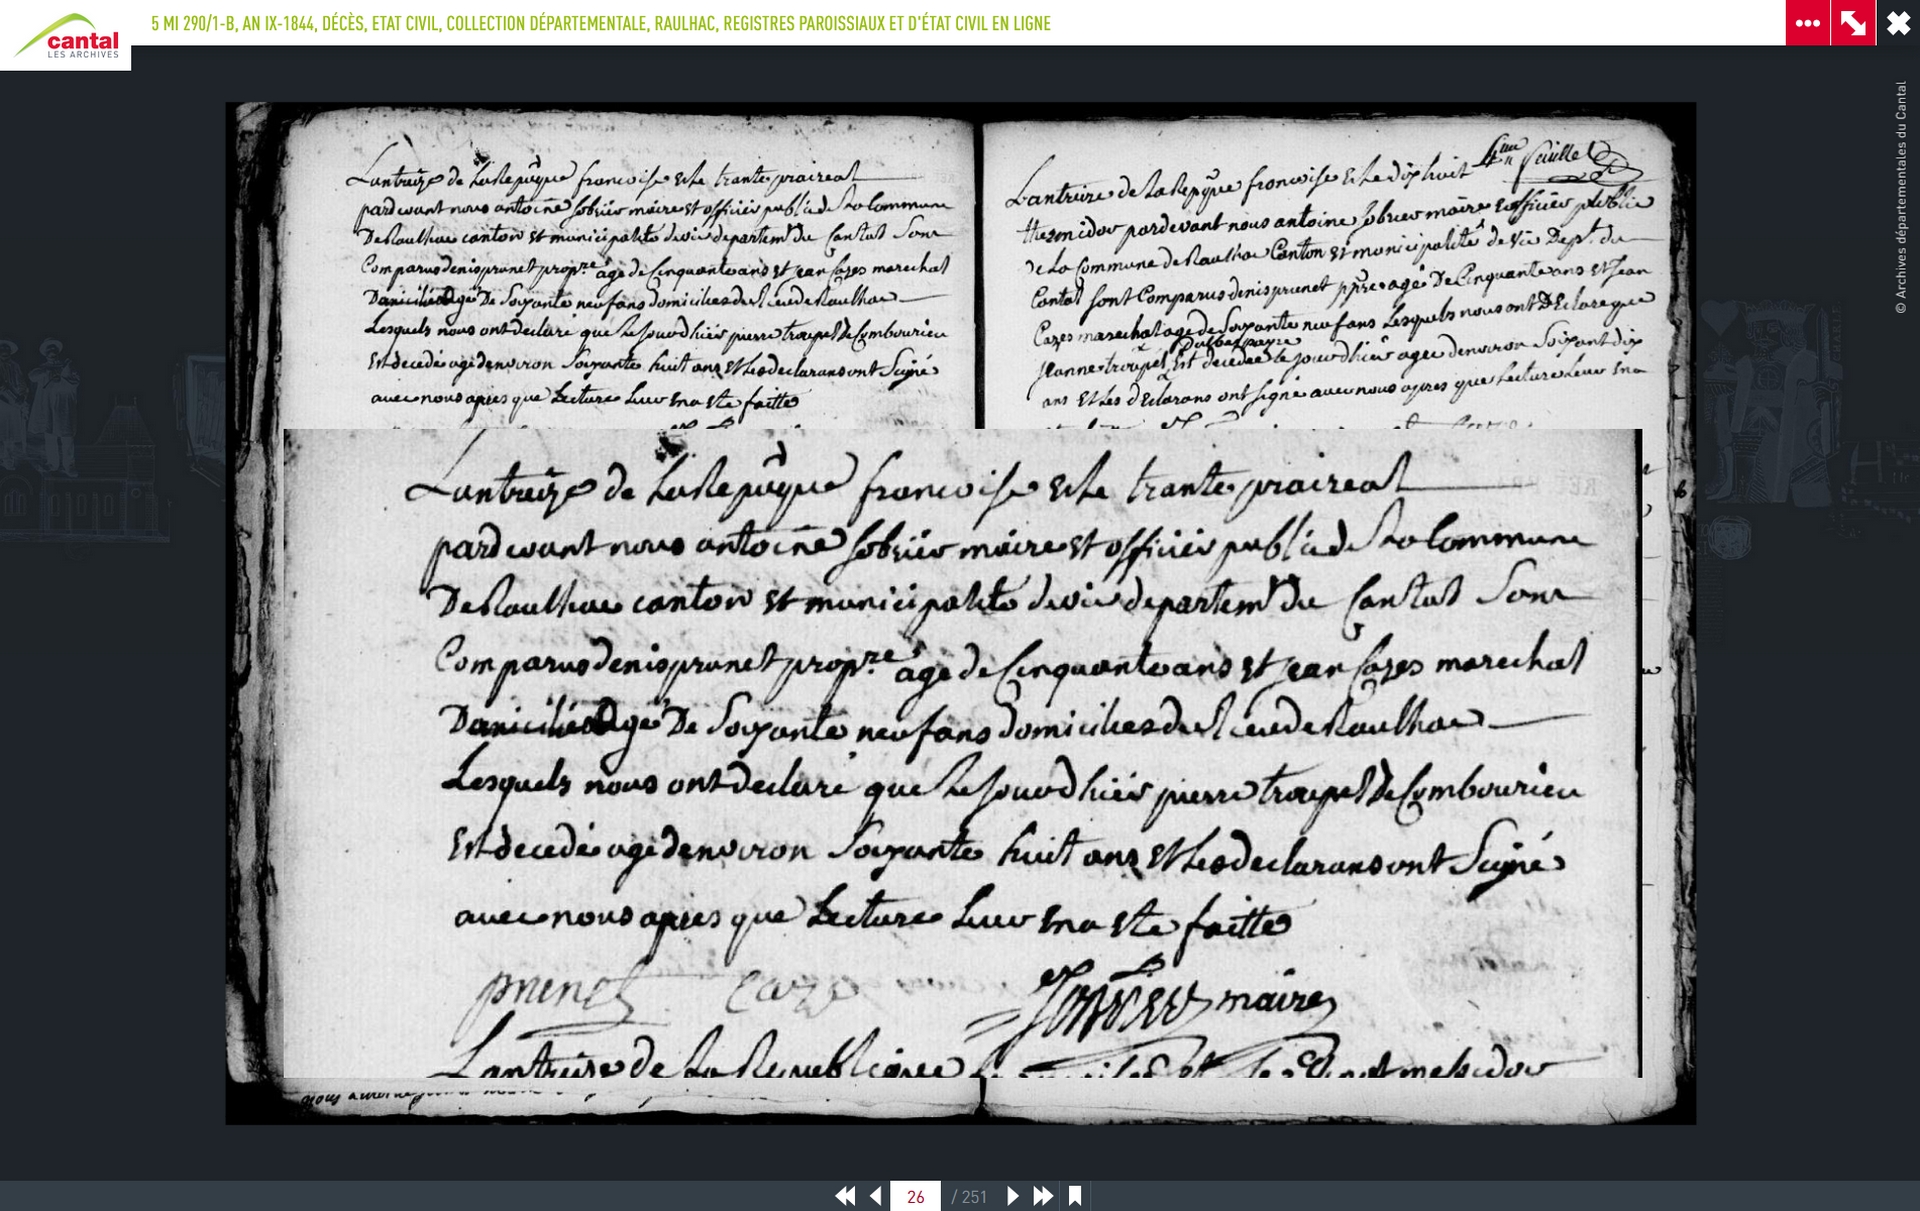 5 MI 290/1-B, AN IX-1844, DÉCÈS, ETAT CIVIL, COLLECTION DÉPARTEMENTALE, RAULHAC, REGISTRES PAROISSIAUX ET D'ÉTAT CIVIL EN LIGNE
cantal
LES ARCHIVES
© Archives départementales du Cantal
Lantreize de La Repuque francoise et le trante praireal
pardevant nous antoine sobrier maire et officier public de La Commune
De Raulhac canton et municipalité de vic departemt du Cantal Sont
Comparus denis prunet proprre age de Cinquante ans et jean Cazes marechal
age De Soixante neuf ans domicilies du Lieu de Raulhac
Lesquels nous ont declaré que Le jour d hier pierre troupel De Combourieu
Est decedé agé denviron Soixante huit ans et Les declarans ont Signé
avec nous apres que Lecture Leur Ena Ete faitte
4me feuillet
Lantreize de La Repque francoise et le dix huit
thermidor pardevant nous antoine sobrier maire et officier public
de La Commune de Raulhac Canton et municipalité de Vic Dept. du
Cantal sont Comparus denis prunet ppre agé De Cinquante ans et Jean
Cazes marechal age de Soixante neuf ans Lesquels nous ont Declare que
Jeanne troupel Est decedée le jour d hier agee denviron Soixant dix
ans Et Les declarans ont signé avec nous apres que Lecture Leur Ena
Lantreize de La Repuque francoise et le trante praireal
pardevant nous antoine sobrier maire et officier public de La Commune
De Raulhac canton et municipalité de vic departemt du Cantal Sont
Comparus denis prunet proprre age de Cinquante ans et jean Cazes marechal
age De Soixante neuf ans domicilies du Lieu de Raulhac
Lesquels nous ont declaré que Le jour d hier pierre troupel De Combourieu
Est decedé agé denviron Soixante huit ans et Les declarans ont Signé
avec nous apres que Lecture Leur Ena Ete faitte
prunet Caze Sobrier maire
Lantreize de La Republique
messidor
26 / 251